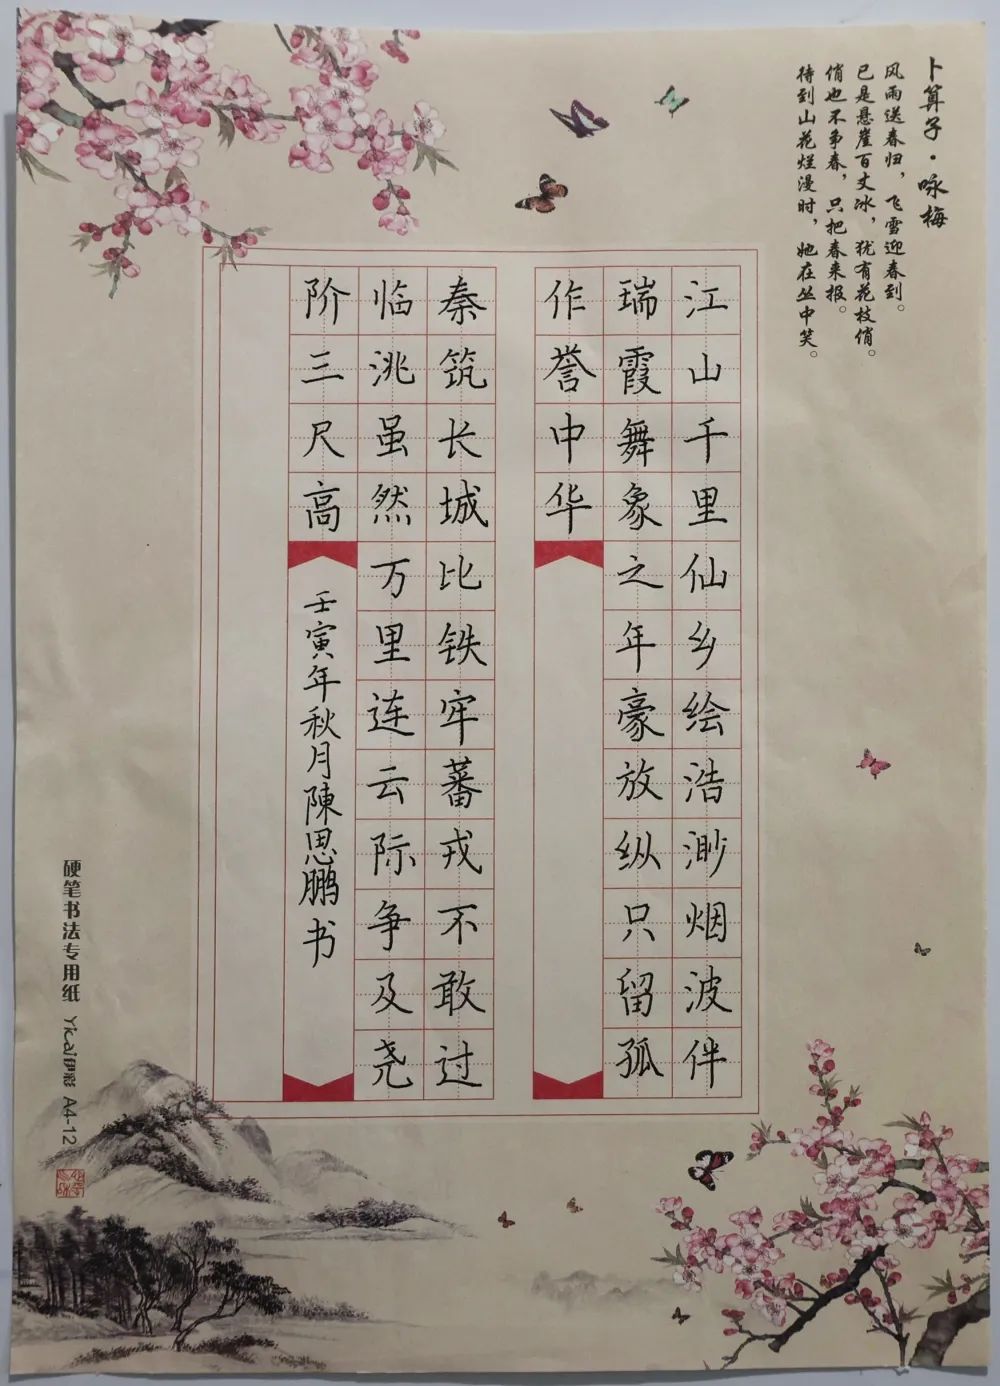 卜算子·咏梅
风雨送春归，飞雪迎春到。
已是悬崖百丈冰，犹有花枝俏。
俏也不争春，只把春来报。
待到山花烂漫时，她在丛中笑。
江山千里仙乡绘浩渺烟波伴
瑞霞舞象之年豪放纵只留孤
作誉中华
秦筑长城比铁牢蕃戎不敢过
临洮虽然万里连云际争及尧
阶三尺高
壬寅年秋月陳思鹏书
硬笔书法专用纸 Yicai伊彩 A4-12